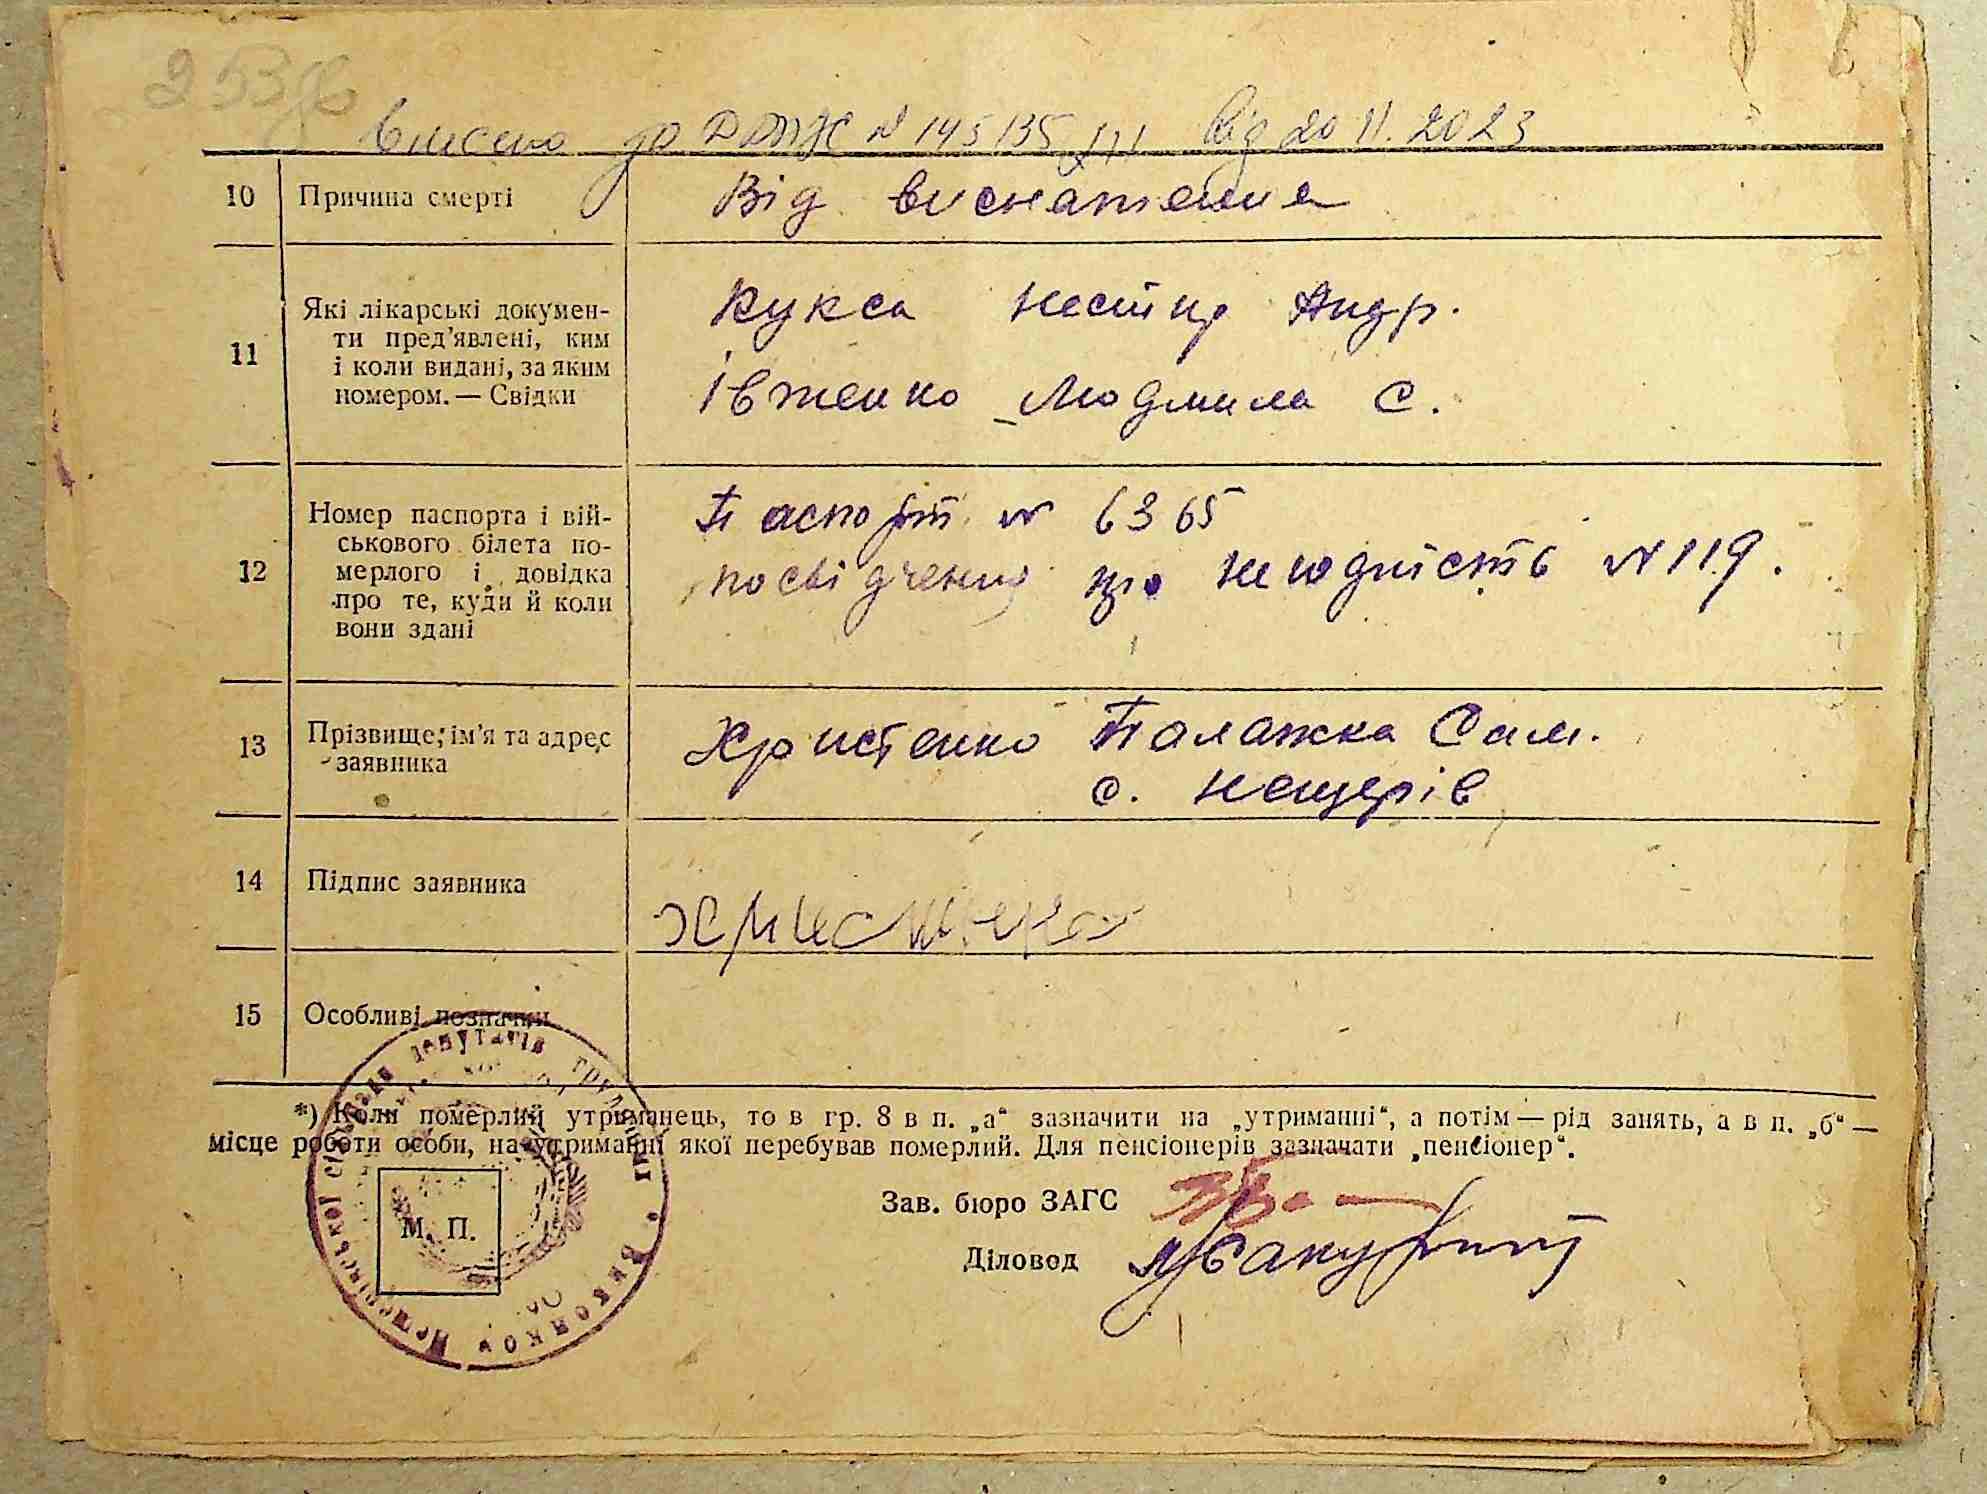 253
Внесено до ДРАЦС N 145135 від 20 11. 2023
10 Причина смерті Від виснаження
11 Які лікарські докумен-
ти пред'явлені, ким
і коли видані, за яким
номером. — Свідки
Кукса Нестір Андр.
Івженко Людмила С.
12 Номер паспорта і вій-
ськового білета по-
мерлого і довідка
про те, куди й коли
вони здані
Паспорт N 6365
посвідчення про негодність N 119.
13 Прізвище, ім'я та адрес
заявника
Христенко Палажка Сам.
с. Нещерів
14 Підпис заявника Христенко
15 Особливі позначки
*) Коли померлий утриманець, то в гр. 8 в п. „а“ зазначити на „утриманні“, а потім — рід занять, а в п. „б“ —
місце роботи особи, на утриманні якої перебував померлий. Для пенсіонерів зазначати „пенсіонер“.
Зав. бюро ЗАГС
Діловод
М. П.
Виконком Нещерівської сільради депутатів трудящих